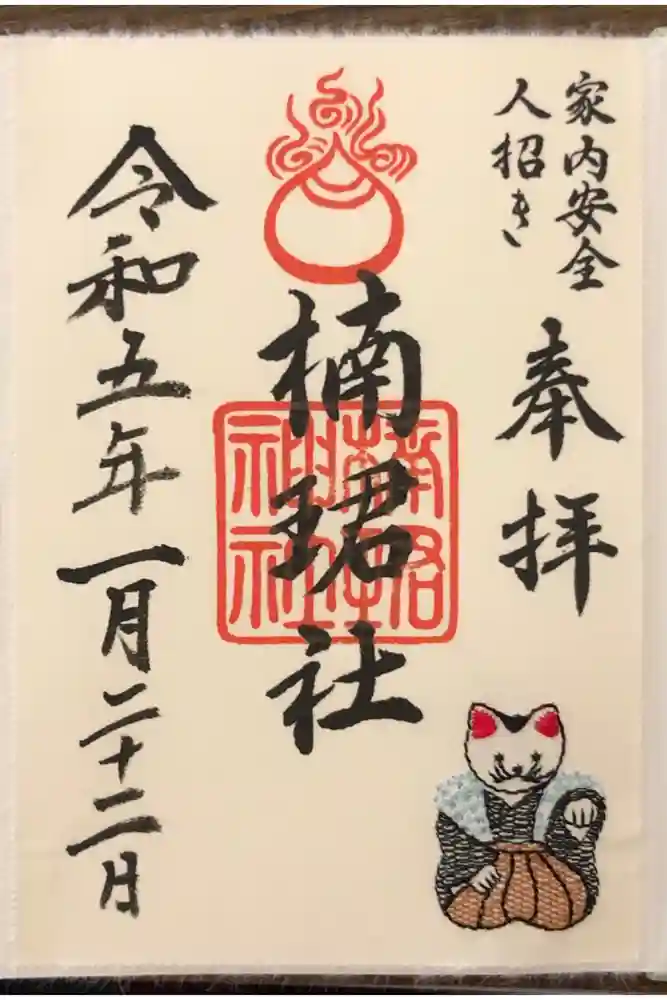 家内安全
人招き
奉拝
楠珺社
令和五年一月二十二日